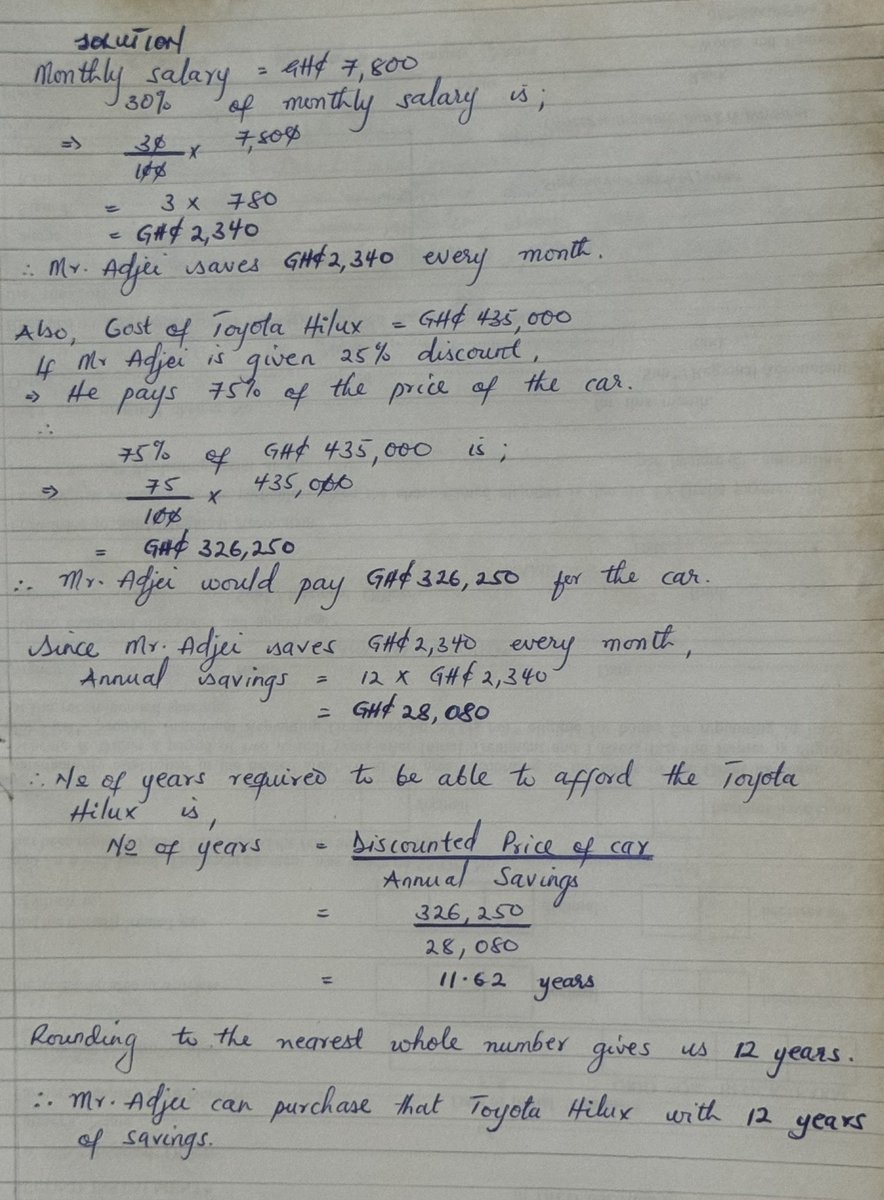 SOLUTION
Monthly salary = GH¢ 7,800
30% of monthly salary is;
⇒ 30/100 × 7,800
= 3 × 780
= GH¢ 2,340
∴ Mr. Adjei saves GH¢2,340 every month.
Also, Cost of Toyota Hilux = GH¢ 435,000
If Mr Adjei is given 25% discount,
⇒ He pays 75% of the price of the car.
∴
75% of GH¢ 435,000 is;
⇒ 75/100 × 435,000
= GH¢ 326,250
∴ Mr. Adjei would pay GH¢ 326,250 for the car.
Since Mr. Adjei saves GH¢2,340 every month,
Annual savings = 12 × GH¢ 2,340
= GH¢ 28,080
∴ No of years required to be able to afford the Toyota
Hilux is,
No of years = Discounted Price of car
Annual Savings
= 326,250
28,080
= 11.62 years
Rounding to the nearest whole number gives us 12 years.
∴ Mr. Adjei can purchase that Toyota Hilux with 12 years
of savings.